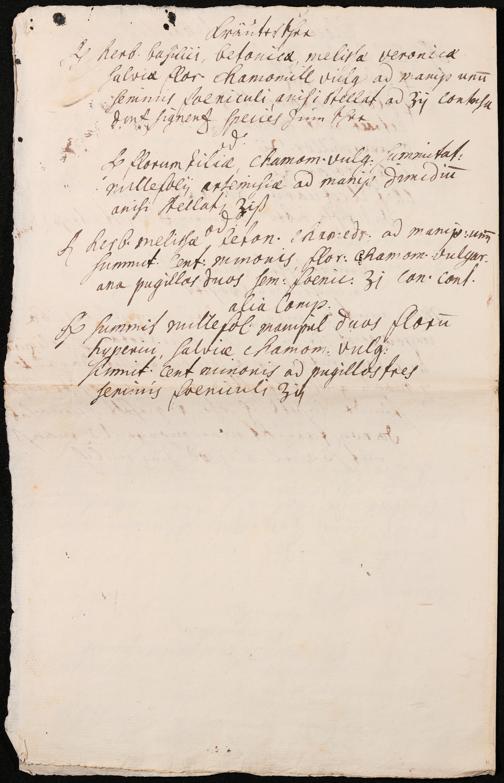 Kräuterthee
℞ Herb. basilici, betonicæ, melissæ veronicæ
salviæ flor chamomill vulg ad manip unū
seminis foeniculi anisi stellat ad ʒij contusa
d signent species zum thee
od.
℞ florum tiliæ, chamom. vulg. summitat.
millefolij artemisiæ ad manip dimidiū
anisi stellat. ʒiß
od
℞ herb. melissæ beton. ad manip. unū
summit. cent. minoris, flor. chamom. vulgar.
ana pugillos duos sem. foenic. ʒj con. cont.
alia Comp.
℞ summit millefol. manipul duos florū
hyperici, salviæ chamom. vulg.
summit cent minoris ad pugillos tres
seminis foeniculi ʒij